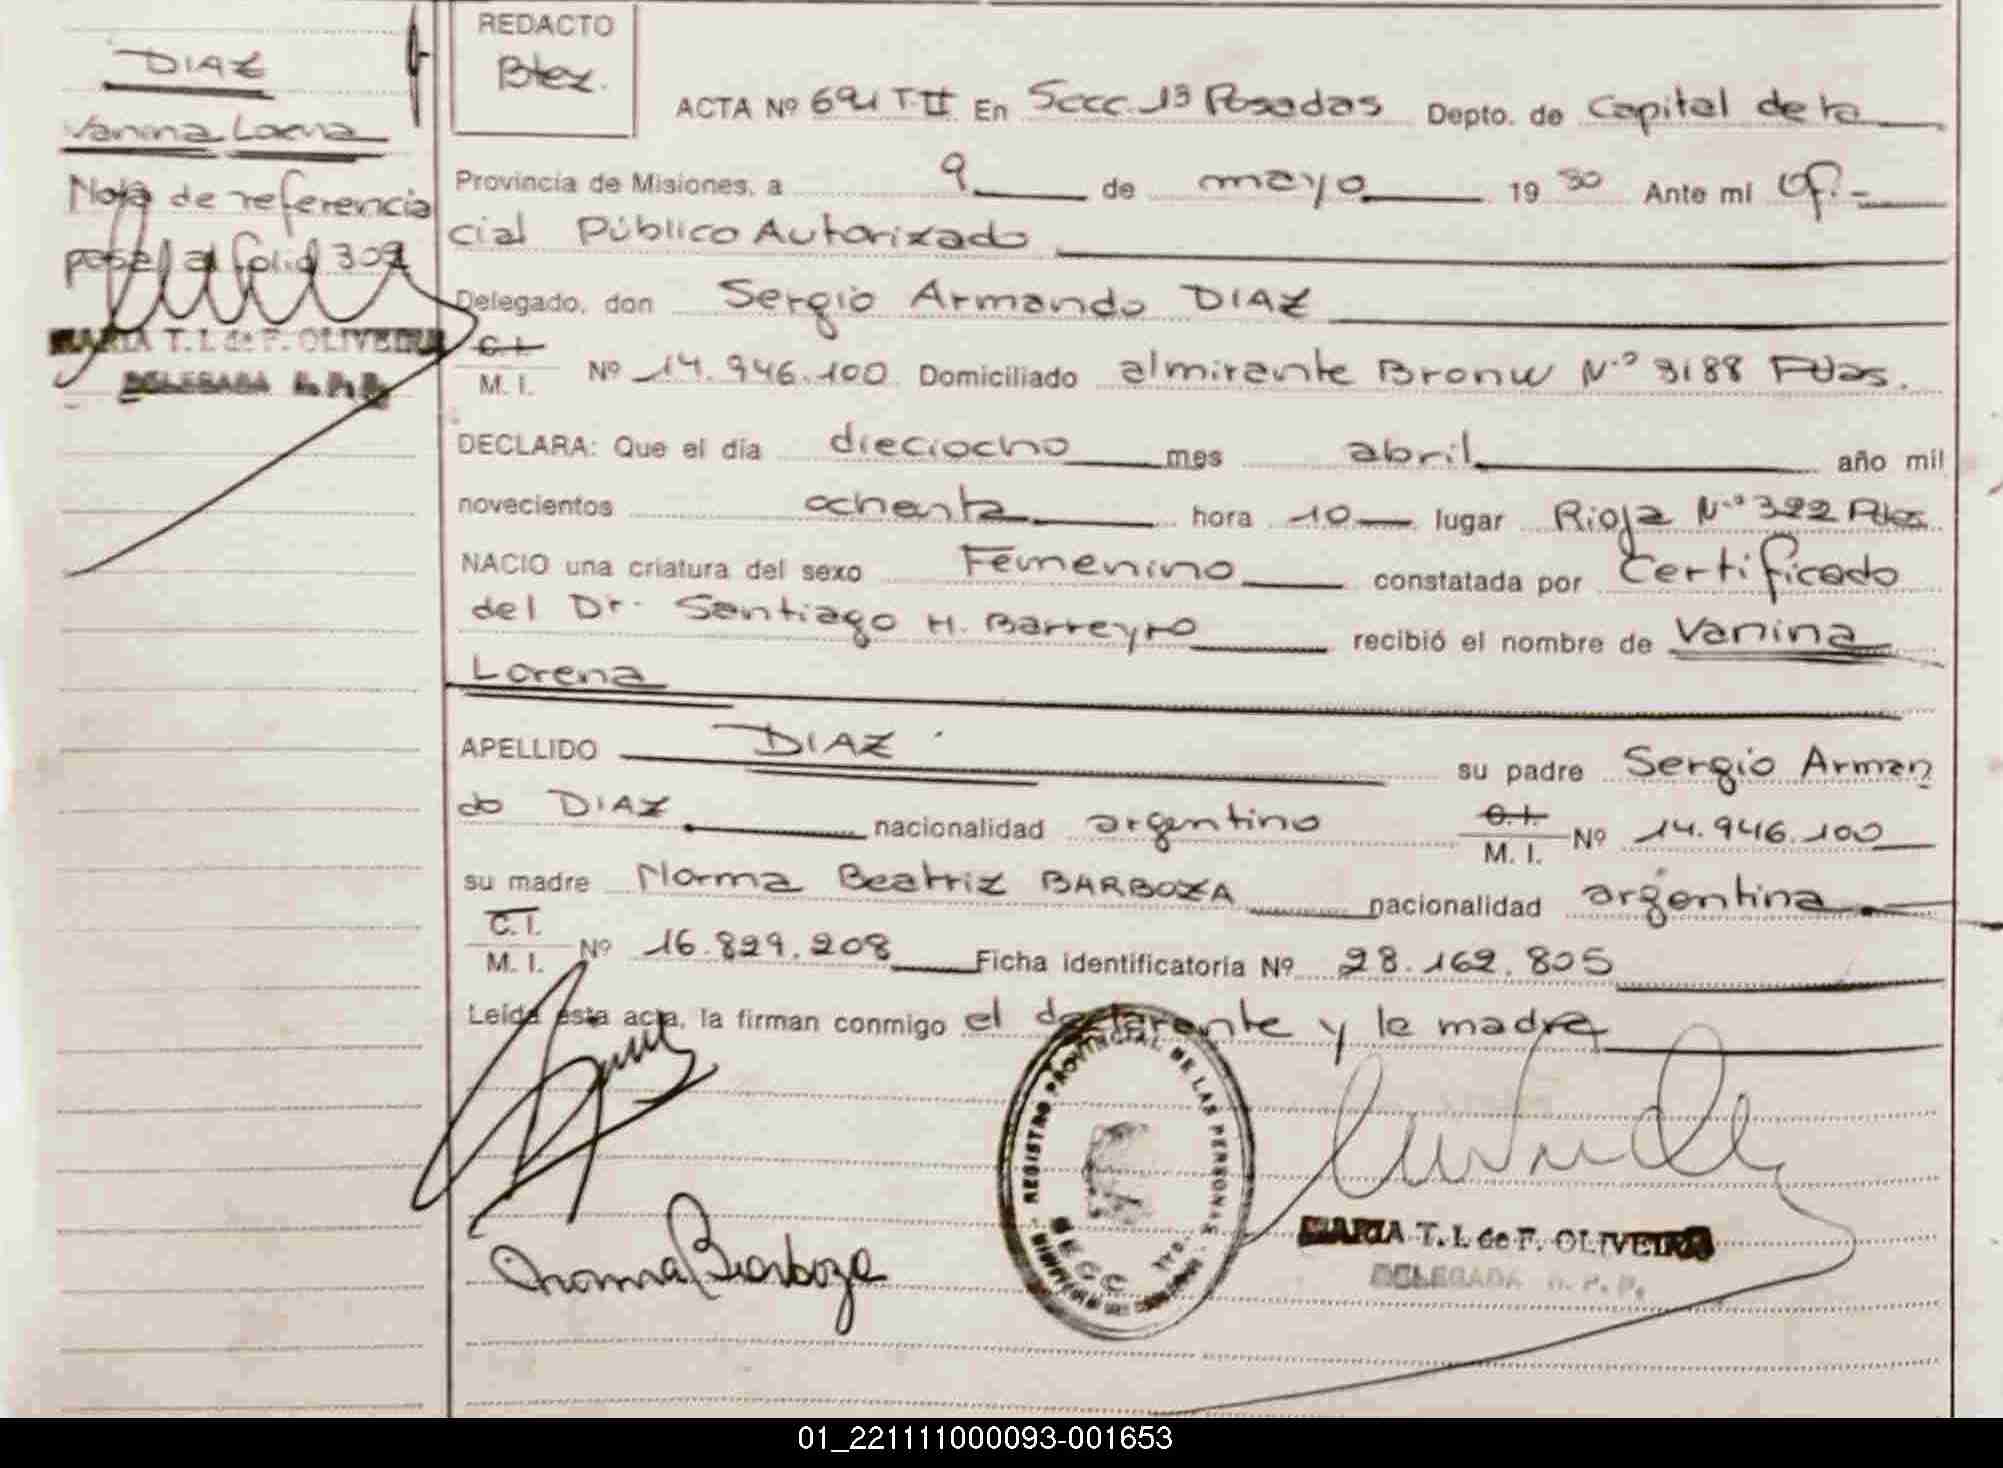 DIAZ
Vanina Lorena
Nota de referencia
pasa al folio 302
MARIA T. I. de F. OLIVEIRA
DELEGADA R. P. P.
REDACTO
Btez.
ACTA Nº 691 T II En Secc. 1ª Posadas Depto. de Capital de la
Provincia de Misiones, a 9 de mayo 19 80 Ante mi Of.-
cial Público Autorizado
Delegado, don Sergio Armando DIAZ
C. I.
M. I. Nº 14.946.100 Domiciliado almirante Bronw N.º 3188 Pdas.
DECLARA: Que el día dieciocho mes abril año mil
novecientos ochenta hora 10 lugar Rioja N.º 322 Pdas
NACIO una criatura del sexo Femenino constatada por Certificado
del Dr. Santiago H. Barreyro recibió el nombre de Vanina
Lorena
APELLIDO DIAZ su padre Sergio Arman
do DIAZ nacionalidad argentino C. I. M. I. Nº 14.946.100
su madre Norma Beatriz BARBOZA nacionalidad argentina
C. I.
M. I. Nº 16.829.208 Ficha identificatoria Nº 28.162.805
Leída esta acta, la firman conmigo el declarante y la madre
REGISTRO PROVINCIAL DE LAS PERSONAS
SECC
Norma Barboza
MARIA T. I. de F. OLIVEIRA
DELEGADA R. P. P.
01_221111000093-001653